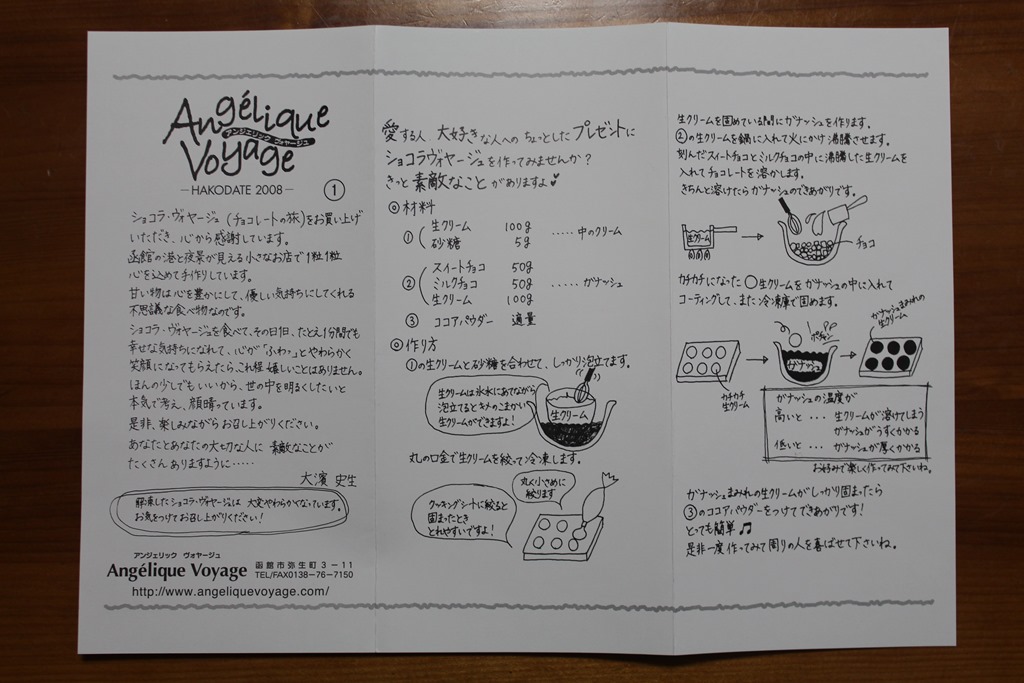 Angélique
アンジェリック ヴォヤージュ
Voyage
—HAKODATE 2008—
①
ショコラ・ヴォヤージュ(チョコレートの旅)をお買い上げ
いただき、心から感謝しています。
函館の港と夜景が見える小さなお店で1粒1粒
心を込めて手作りしています。
甘い物は心を豊かにして、優しい気持ちにしてくれる
不思議な食べ物なのです。
ショコラ・ヴォヤージュを食べて、その日1日、たとえ1分間でも
幸せな気持ちになれて、心が「ふわっ」とやわらかく
笑顔になってもらえたら、これ程嬉しいことはありません。
ほんの少しでもいいから、世の中を明るくしたいと
本気で考え、頑晴っています。
是非、楽しみながらお召し上がりください。
あなたとあなたの大切な人に 素敵なことが
たくさんありますように……
大濱 史生
解凍したショコラ・ヴォヤージュは 大変やわらかくなっています。
お気をつけてお召し上がりください!
アンジェリック ヴォヤージュ
Angélique Voyage
函館市弥生町3-11
TEL/FAX0138-76-7150
http://www.angeliquevoyage.com/
愛する人、大好きな人への ちょっとしたプレゼントに
ショコラヴォヤージュを作ってみませんか?
きっと素敵なことがありますよ♥
◎材料
① 生クリーム 100g
砂糖 5g ……中のクリーム
② スイートチョコ 50g
ミルクチョコ 50g ……ガナッシュ
生クリーム 100g
③ ココアパウダー 適量
◎作り方
①の生クリームと砂糖を合わせて、しっかり泡立てます。
生クリームは氷水にあてながら
泡立てるとキメのこまかい
生クリームができますよ!
生クリーム
丸の口金で生クリームを絞って冷凍します。
丸く小さめに
絞ります
クッキングシートに絞ると
固まったとき
とれやすいですよ!
生クリームを固めている間にガナッシュを作ります。
②の生クリームを鍋に入れて火にかけ沸騰させます。
刻んだスイートチョコとミルクチョコの中に沸騰した生クリームを
入れてチョコレートを溶かします。
きちんと溶けたらガナッシュのできあがりです。
生クリーム
チョコ
カチカチになった○生クリームをガナッシュの中に入れて
コーティングして、また冷凍庫で固めます。
ガナッシュまみれの
生クリーム
ポチャン
ガナッシュ
カチカチ
生クリーム
ガナッシュの温度が
高いと … 生クリームが溶けてしまう
ガナッシュがうすくかかる
低いと … ガナッシュが厚くかかる
お好みで楽しく作ってみて下さいね。
ガナッシュまみれの生クリームがしっかり固まったら
③のココアパウダーをつけてできあがりです!
とっても簡単♫
是非一度作ってみて周りの人を喜ばせて下さいね。